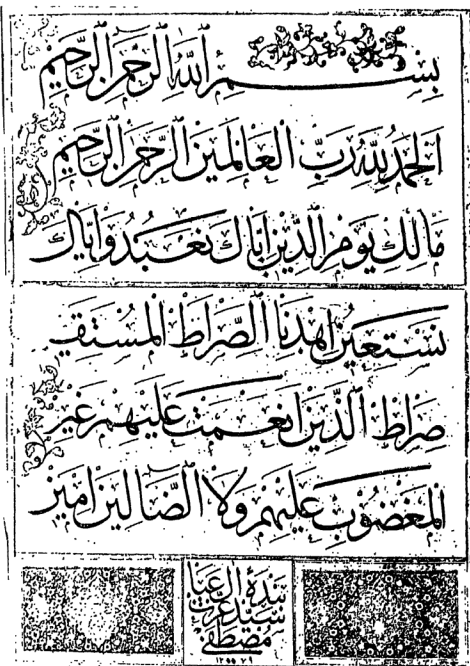 بِسْمِ اللَّهِ الرَّحْمٰنِ الرَّحِيمِ
الْحَمْدُ لِلَّهِ رَبِّ الْعَالَمِينَ الرَّحْمٰنِ الرَّحِيمِ
مَالِكِ يَوْمِ الدِّينِ اِيَّاكَ نَعْبُدُ وَاِيَّاكَ
نَسْتَعِينُ اِهْدِنَا الصِّرَاطَ الْمُسْتَقِيمَ
صِرَاطَ الَّذِينَ اَنْعَمْتَ عَلَيْهِمْ غَيْرِ
الْمَغْضُوبِ عَلَيْهِمْ وَلَا الضَّالِّينَ اٰمِينَ
بنده آل عبا
سيد عزت
مصطفى